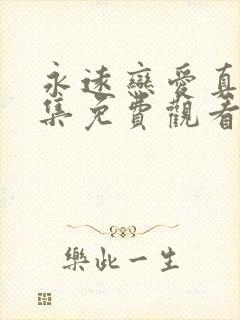 永遠戀愛真
集免費觀看
樂此一生